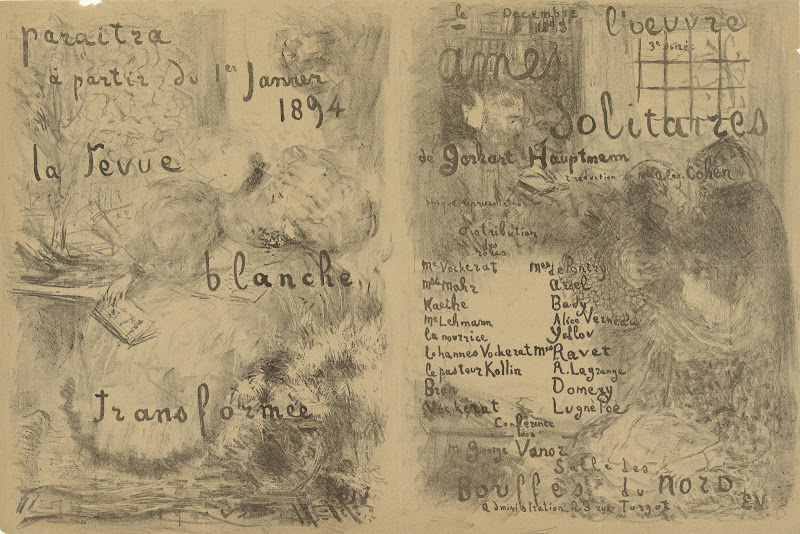 paraitra
à partir du 1er Janvier
1894
la revue
blanche
transformée
le Decembre
1893
l'oeuvre
3e soirée
âmes
Solitaires
de Gerhart Hauptmann
traduction de Mr alex. Cohen
distribution
des
rôles
Me Vockerat Mes de Pontry
Mlle Mahr
Kaethe Bady
Me Lehmann Alice
la nourrice Yellov
Iohannes Vockerat Mrs Ravet
le pasteur Kollin R. Lagrange
Bren Domeny
Vockerat Lugné Poe
Conférence
de
Mr George Vanor
Salle des
Bouffes du nord
administration 23 rue Turgot
ev